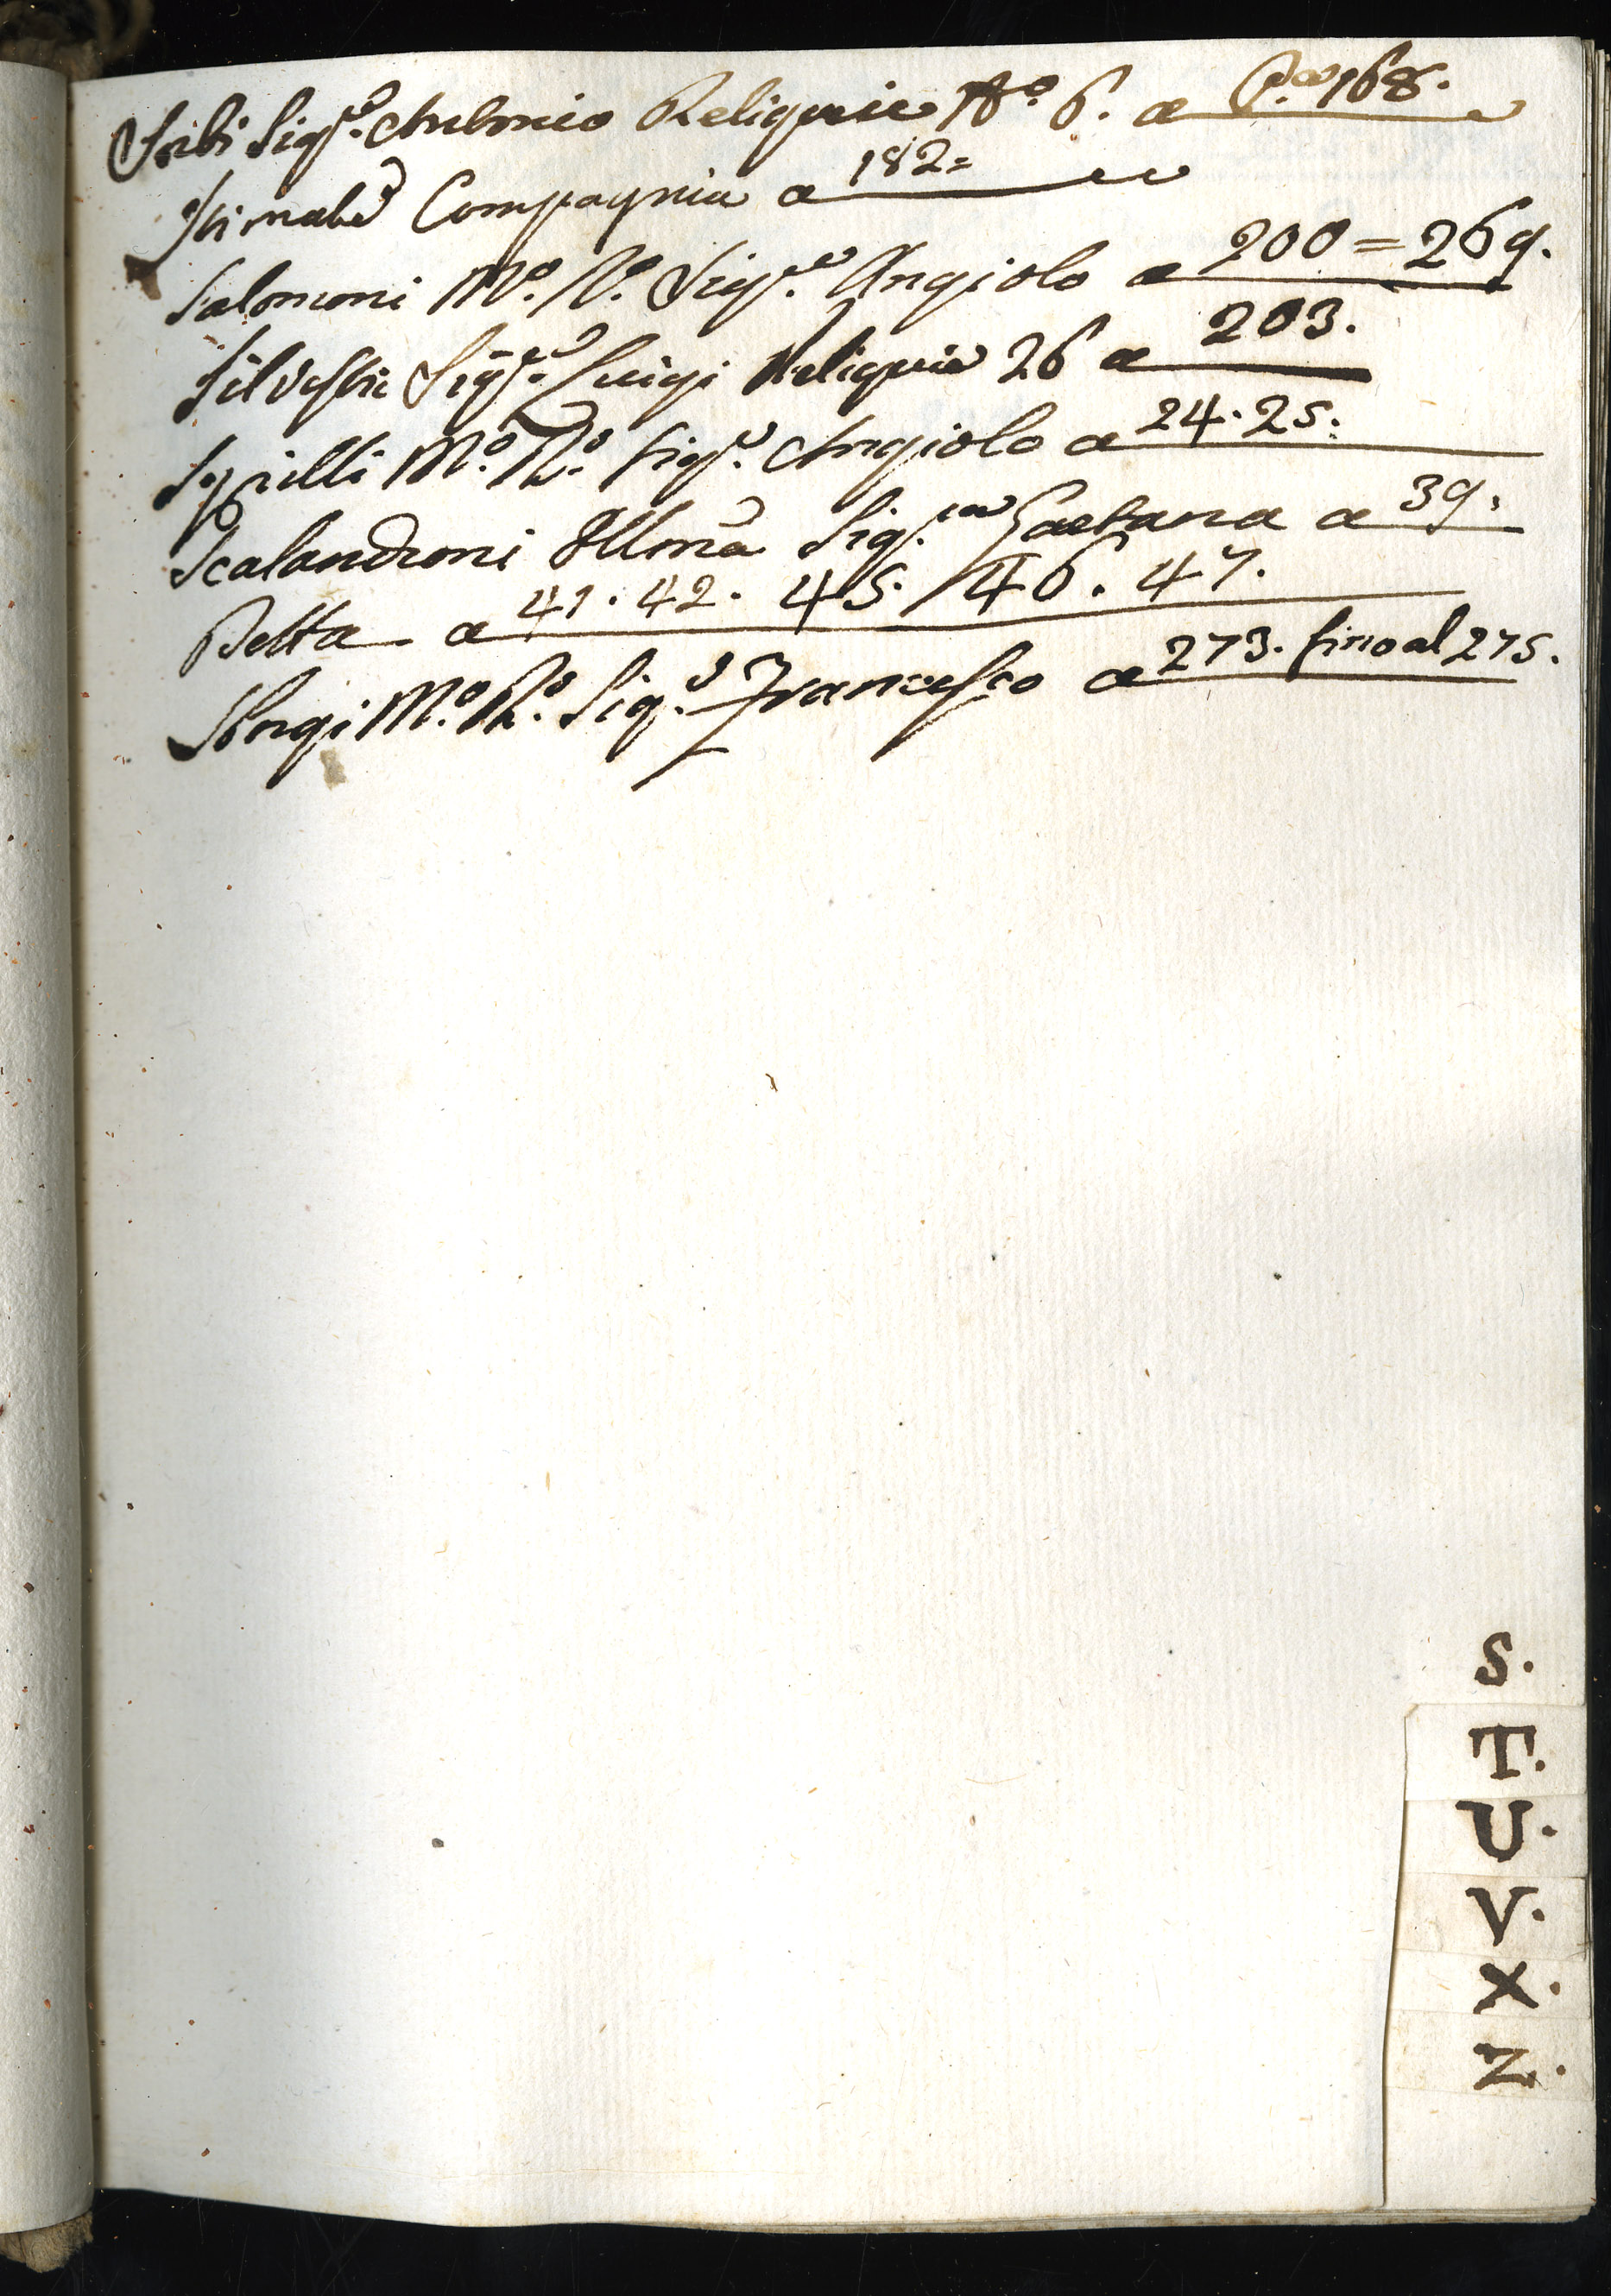 Sig.re Antonio Reliquie No. 6. a C.a 168.
Stimate Compagnia a 182=
Salomoni M.o R.o Sig.re Angiolo a 200 = 269.
Silvestri Sig.re Luigi Reliquie 26 a 203.
M.o R.o Sig.re Angiolo a 24. 25.
Scalandroni Illma Sig.ra Gaetana a 39.
Detta a 41. 42. 45. 46. 47.
M.o R.o Sig.e Francesco a 273. fino al 275.
S.
T.
U.
V.
X.
Z.